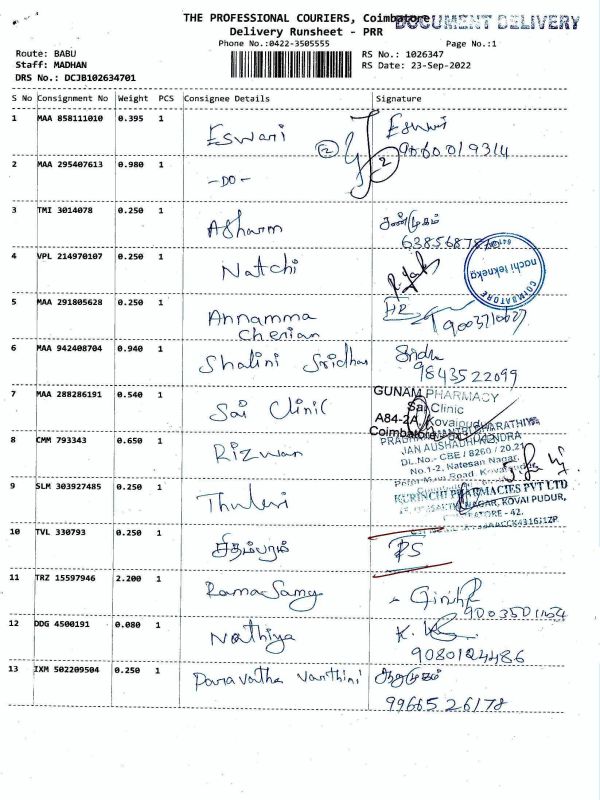 THE PROFESSIONAL COURIERS, Coimbatore
DOCUMENT DELIVERY
Delivery Runsheet - PRR
Phone No.:0422-3505555
Page No.:1
Route: BABU
RS No.: 1026347
Staff: MADHAN
RS Date: 23-Sep-2022
DRS No.: DCJB102634701
S No Consignment No Weight PCS Consignee Details Signature
1 MAA 858111010 0.395 1 Eswari 2 Eswari
9060019314
2 MAA 295407613 0.980 1 -DO- 2
3 TMI 3014078 0.250 1 Asharm சண்முகம்
4 VPL 214970107 0.250 1 Natchi
nachi tekneka
COIMBATORE
5 MAA 291805628 0.250 1 Annamma
Cherian
6 MAA 942408704 0.940 1 Shalini Sridhar Sridhar
9843522099
7 MAA 288286191 0.540 1 Sai Clinic
GUNAM PHARMACY
Sai Clinic
A84-2A, Kovaipudur
Coimbatore
8 CMM 793343 0.650 1 Rizwan
PRADHAN MANTRI BHARATHIYA
JAN AUSHADHI KENDRA
DL.No.- CBE / 8260 / 20,21
No.1-2, Natesan Nagar,
9 SLM 303927485 0.250 1 Thulasi
KURINCHI PHARMACIES PVT LTD
NAGAR, KOVAI PUDUR,
COIMBATORE - 42.
10 TVL 330793 0.250 1 சிதம்பரம் RS
11 TRZ 15597946 2.200 1 RamaSamy
12 DDG 4500191 0.080 1 Nathiya
9080124486
13 IXM 502209504 0.250 1 Paravatha Varthini ஆறுமுகம்
9966526178